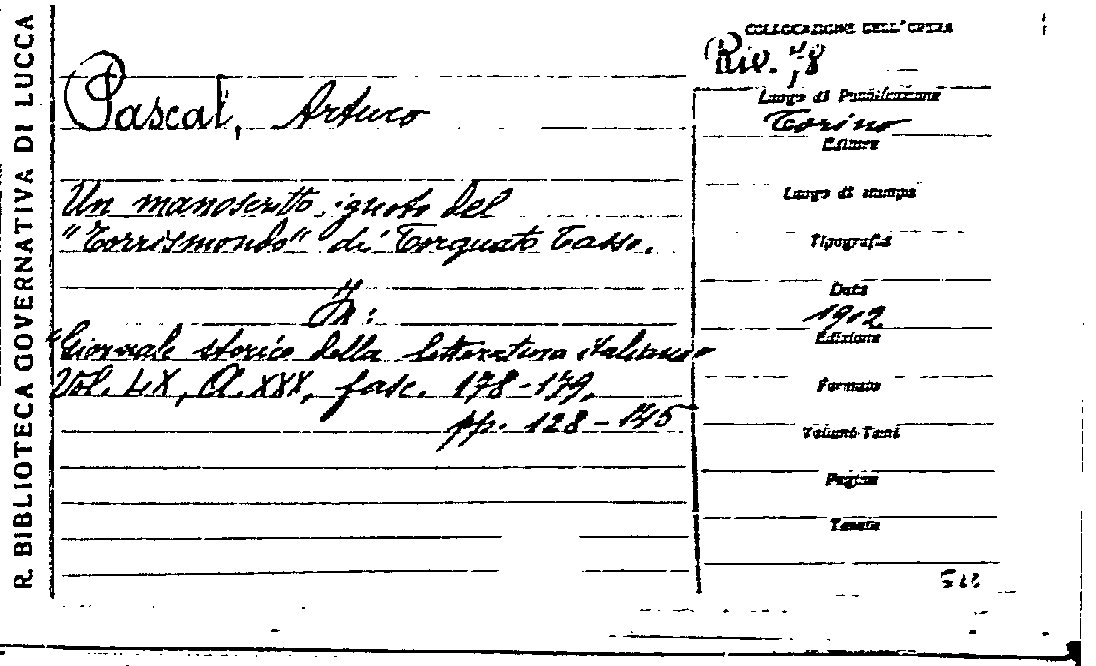 R. BIBLIOTECA GOVERNATIVA DI LUCCA
Pascal, Arturo
Un manoscritto ignoto del
"Torrismondo" di Torquato Tasso.
In:
"Giornale storico della letteratura italiana"
Vol. LX, A. XXX, fasc. 178-179,
pp. 128-145
COLLOCAZIONE DELL'OPERA
Riv.
Luogo di Pubblicazione
Torino
Editore
Luogo di stampa
Tipografia
Data
1912
Edizione
Formato
Volumi-Tomi
Pagine
Tavole